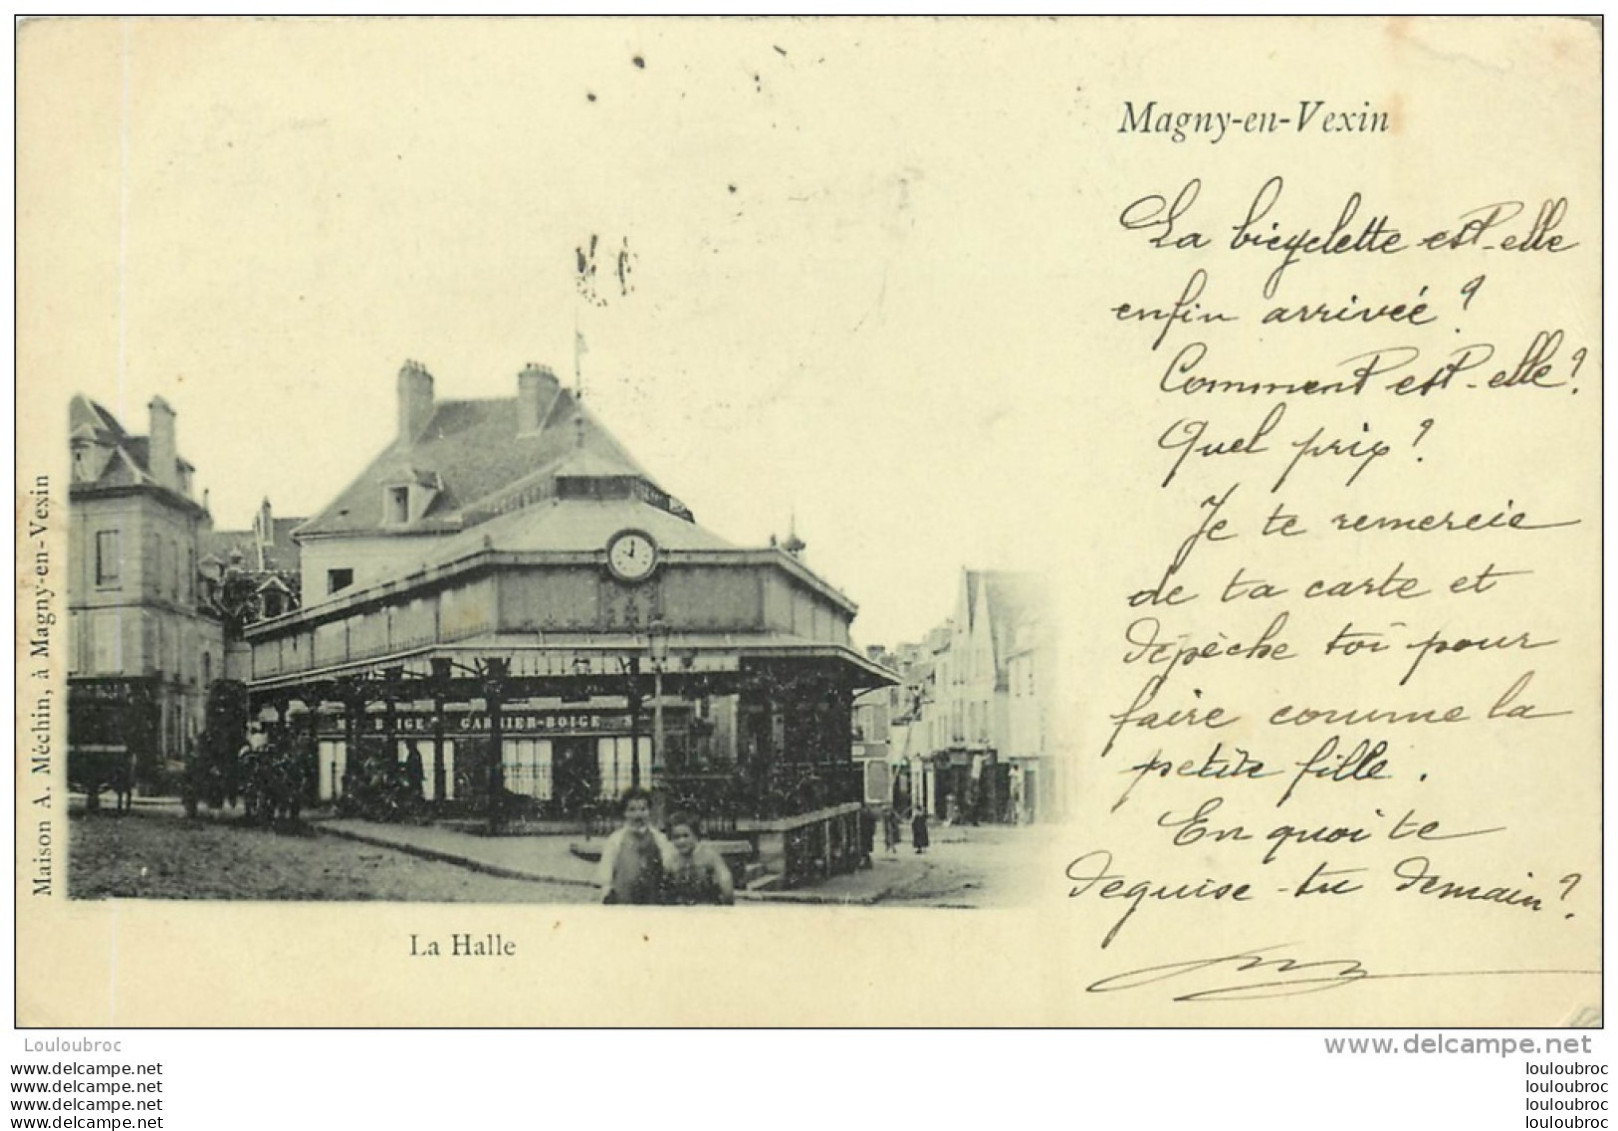 Magny-en-Vexin
La bicyclette est-elle
enfin arrivée ?
Comment est-elle ?
Quel prix ?
Je te remercie
de ta carte et
dépèche toi pour
faire comme la
petite fille.
En quoi te
deguise-tu demain ?
Maison A. Méchin, à Magny-en-Vexin
BOIGE GARNIER-BOIGE
La Halle
Louloubroc
www.delcampe.net
www.delcampe.net
www.delcampe.net
www.delcampe.net
www.delcampe.net
louloubroc
louloubroc
louloubroc
louloubroc